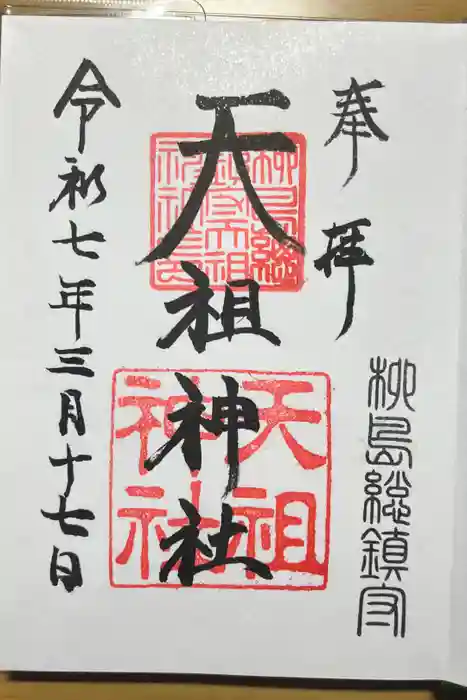 奉拝
柳島総鎮守
天祖神社
柳島総鎮守天祖神社之印
天祖神社
令和七年三月十七日